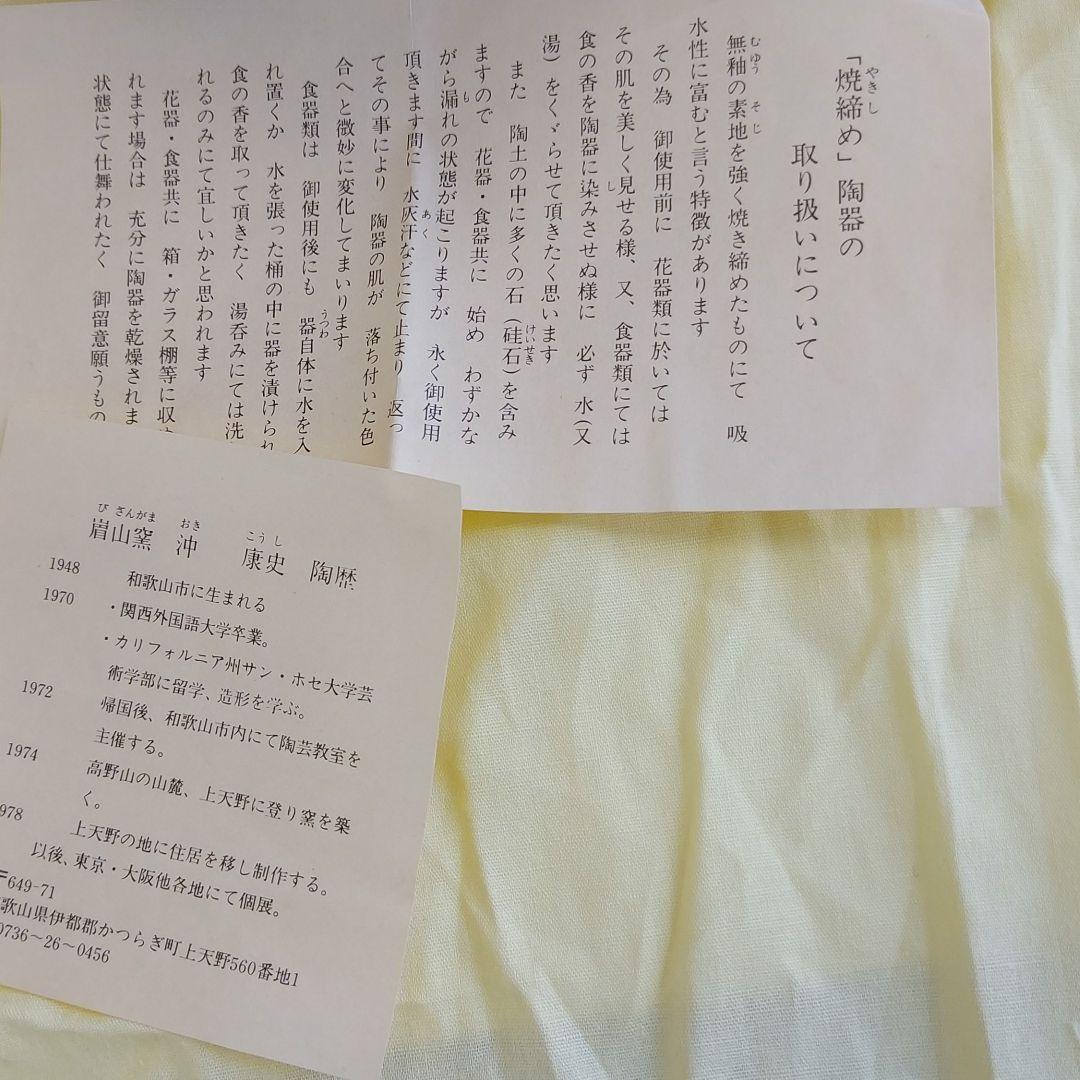 「焼締め」陶器の
取り扱いについて
無釉の素地を強く焼き締めたものにて 吸
水性に富むと言う特徴があります
その為 御使用前に 花器類に於いては
その肌を美しく見せる様、又、食器類にては
食の香を陶器に染みさせぬ様に 必ず 水(又
湯)をくゞらせて頂きたく思います
また 陶土の中に多くの石(硅石)を含み
ますので 花器・食器共に 始め わずかな
がら漏れの状態が起こりますが 永く御使用
頂きます間に 水灰汗などにて止まり 返っ
てその事により 陶器の肌が 落ち付いた色
合へと微妙に変化してまいります
食器類は 御使用後にも 器自体に水を入
れ置くか 水を張った桶の中に器を漬けられ
食の香を取って頂きたく 湯呑みにては洗
れるのみにて宜しいかと思われます
花器・食器共に 箱・ガラス棚等に収
れます場合は 充分に陶器を乾燥されま
状態にて仕舞われたく 御留意願うもの
眉山窯 沖 康史 陶歴
1948 和歌山市に生まれる
1970 ・関西外国語大学卒業。
・カリフォルニア州サン・ホセ大学芸
術学部に留学、造形を学ぶ。
1972 帰国後、和歌山市内にて陶芸教室を
主催する。
1974 高野山の山麓、上天野に登り窯を築
く。
978 上天野の地に住居を移し制作する。
以後、東京・大阪他各地にて個展。
〒649-71
歌山県伊都郡かつらぎ町上天野560番地1
0736～26～0456